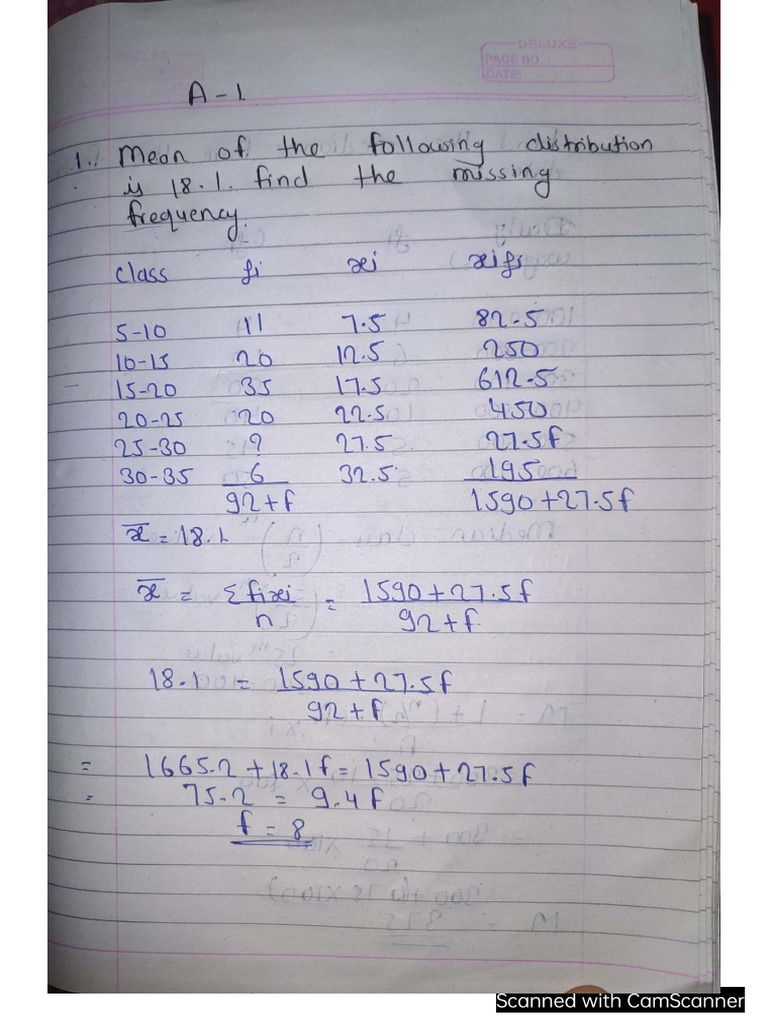 DELUXE
PAGE NO.:
DATE:
A-1.
1. Mean of the following distribution
is 18.1. find the missing
frequency.
class fi xi xifi
5-10 11 7.5 82.5
10-15 20 12.5 250
15-20 35 17.5 612.5
20-25 20 22.5 450
25-30 ? 27.5 27.5f
30-35 6 32.5 195
92+f 1590+27.5f
x̄ = 18.1
x̄ = Σfixi/n = 1590+27.5f/92+f
18.1 = 1590+27.5f/92+f
= 1665.2+18.1f = 1590+27.5f
= 75.2 = 9.4f
f = 8
Scanned with CamScanner